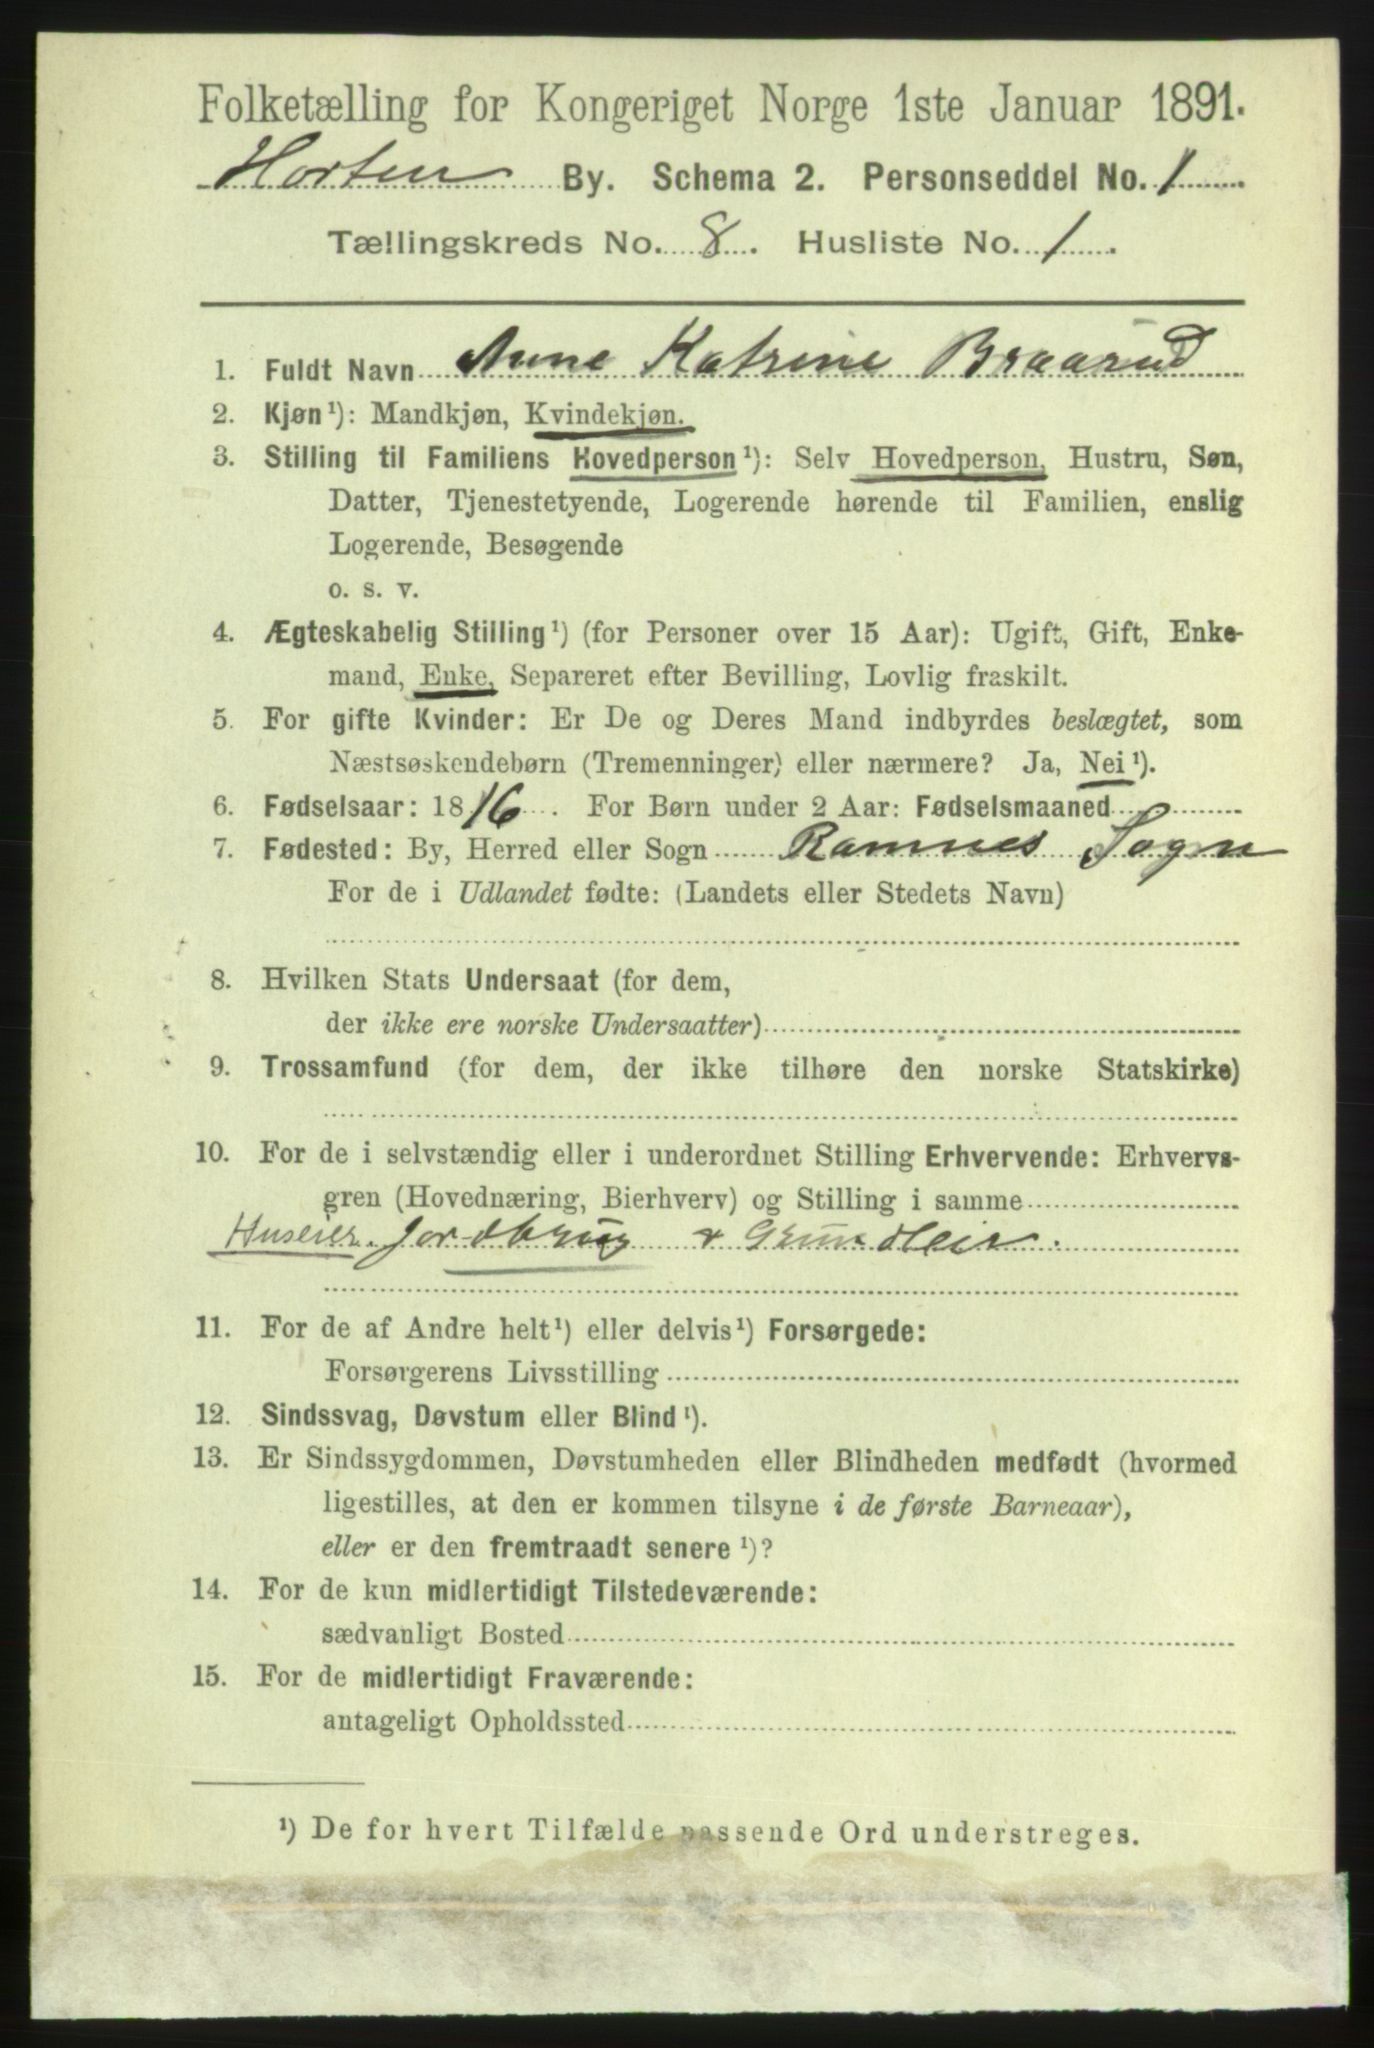 Folketælling for Kongeriget Norge 1ste Januar 1891.
Horten By. Schema 2. Personseddel No. 1
Tællingskreds No. 8. Husliste No. 1.
1. Fuldt Navn Anne Katrine Braarud
2. Kjøn¹): Mandkjøn, Kvindekjøn.
3. Stilling til Familiens Hovedperson¹): Selv Hovedperson, Hustru, Søn,
Datter, Tjenestetyende, Logerende hørende til Familien, enslig
Logerende, Besøgende
o. s. v.
4. Ægteskabelig Stilling¹) (for Personer over 15 Aar): Ugift, Gift, Enke-
mand, Enke, Separeret efter Bevilling, Lovlig fraskilt.
5. For gifte Kvinder: Er De og Deres Mand indbyrdes beslægtet, som
Næstsøskendebørn (Tremenninger) eller nærmere? Ja, Nei¹).
6. Fødselsaar: 1816. For Børn under 2 Aar: Fødselsmaaned
7. Fødested: By, Herred eller Sogn Ramnes Sogn
For de i Udlandet fødte: (Landets eller Stedets Navn)
8. Hvilken Stats Undersaat (for dem,
der ikke ere norske Undersaatter)
9. Trossamfund (for dem, der ikke tilhøre den norske Statskirke)
10. For de i selvstændig eller i underordnet Stilling Erhvervende: Erhvervs-
gren (Hovednæring, Bierhverv) og Stilling i samme
Huseier. Jordbrug + Grundleie.
11. For de af Andre helt¹) eller delvis¹) Forsørgede:
Forsørgerens Livsstilling
12. Sindssvag, Døvstum eller Blind¹).
13. Er Sindssygdommen, Døvstumheden eller Blindheden medfødt (hvormed
ligestilles, at den er kommen tilsyne i de første Barneaar),
eller er den fremtraadt senere¹)?
14. For de kun midlertidigt Tilstedeværende:
sædvanligt Bosted
15. For de midlertidigt Fraværende:
antageligt Opholdssted
¹) De for hvert Tilfælde passende Ord understreges.